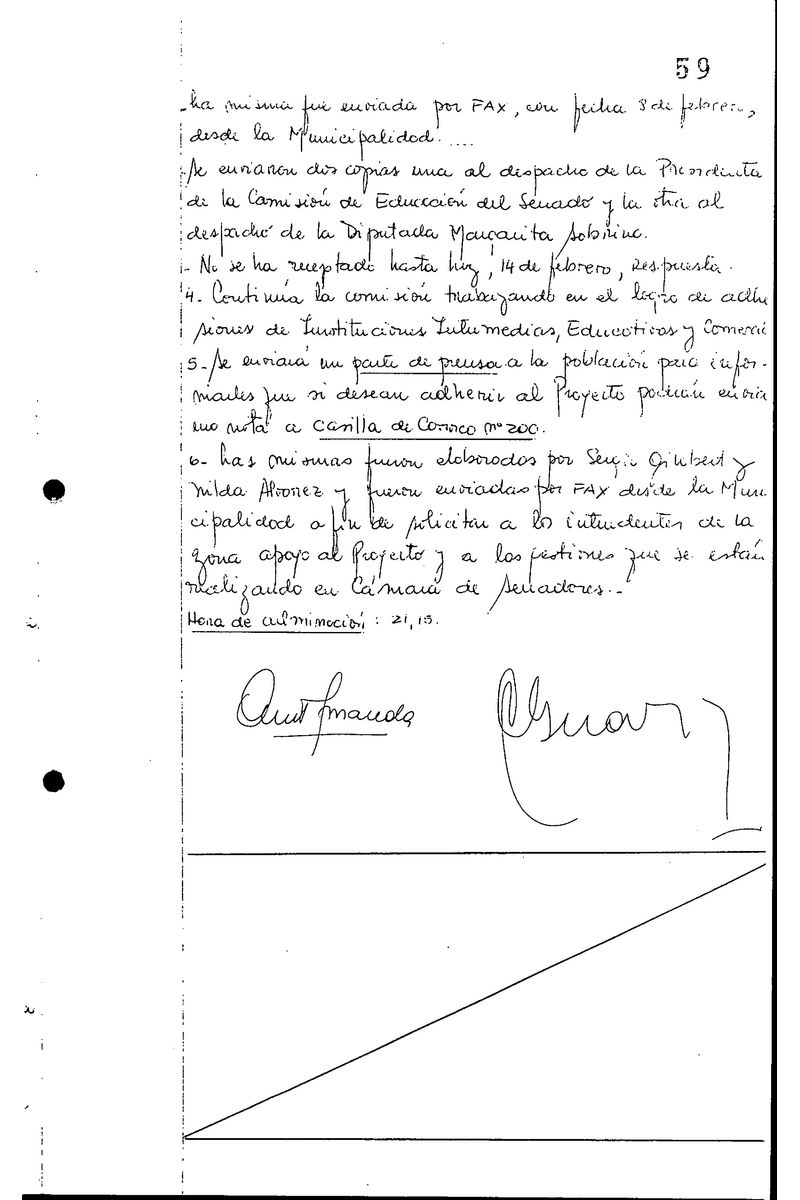 59
- La misma fue enviada por FAX, con fecha 8 de febrero,
desde la Municipalidad....
- Se enviaron dos copias una al despacho de la Presidenta
de la Comisión de Educación del Senado y la otra al
despacho de la Diputada Margarita Sobrino.
- No se ha receptado hasta hoy, 14 de febrero, respuesta.
4- Continúa la comisión trabajando en el logro de adhe
siones de Instituciones Intermedias, Educativas y Comerci
5- Se enviará un parte de prensa a la población para infor-
marles que si desean adherir al Proyecto podrán envia
una nota a Casilla de Correo nº 200.
6- Las mismas fueron elaboradas por Sergio y
Nilda Alvarez y fueron enviadas por FAX desde la Muni
cipalidad a fin de solicitar a los intendentes de la
zona apoyo al Proyecto y a las gestiones que se están
realizando en Cámara de Senadores.-
Hora de culminación: 21,15.